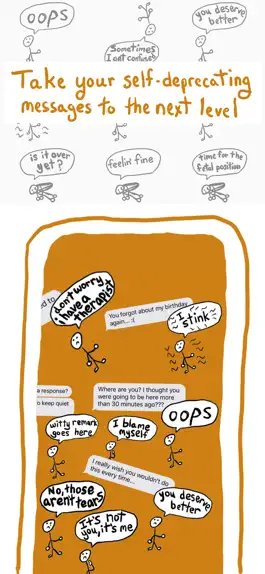 oops
you deserve
better
Sometimes
I get confused
Take your self-deprecating
messages to the next level
is it over
yet?
feelin' fine
time for the
fetal position
ed to
Don't worry
i have a
therapist
You forgot about my birthday
again... :(
I
stink
a response?
o keep quiet
Where are you? I thought you
were going to be here more
than 30 minutes ago???
oops
witty remark
goes here
I blame
myself
I really wish you wouldn't do
this every time...
No, those
aren't tears
It's not
you, it's me
you deserve
better